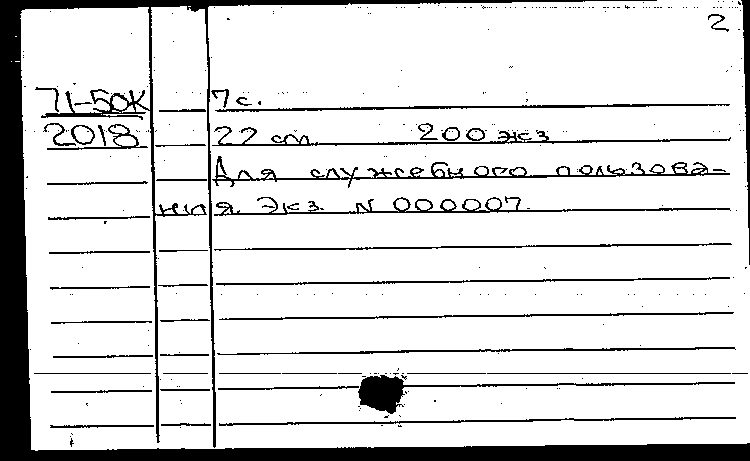 2
71-50К 7 с.
2018 22 см. 200 экз
Для служебного пользова-
ния. Экз. N 000007.